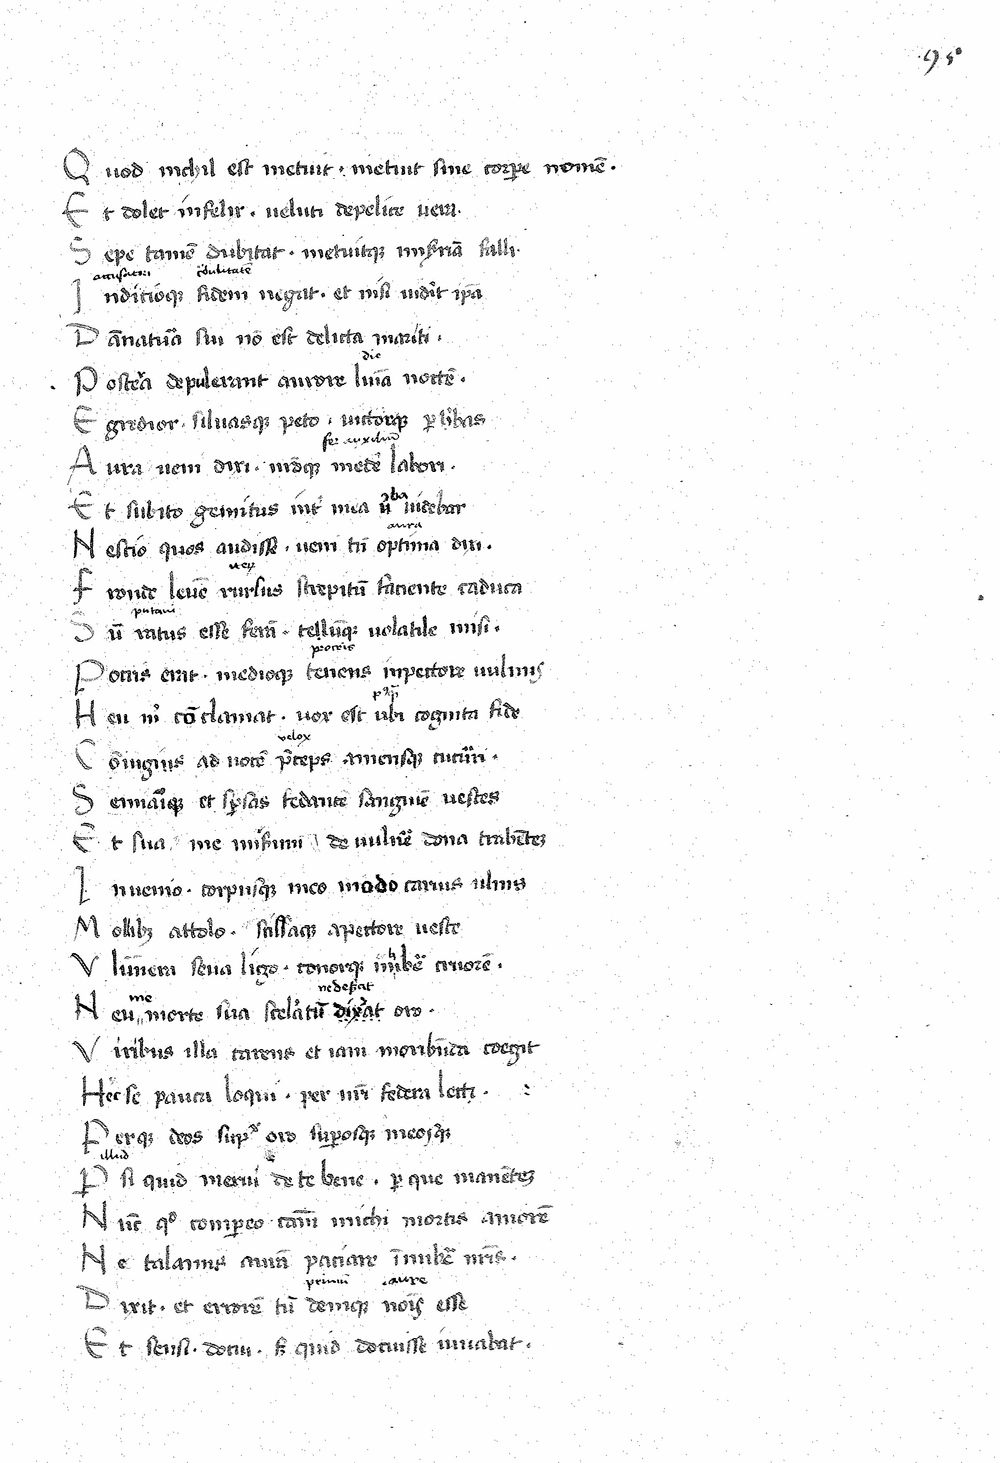 95
Quod nichil est metuit · metuit sine corꝑe nomē ·
Et dolet infelix · ueluti depelice uera ·
Sepe tamē dubitat · metuitqꝫ misr̄ia falli ·
accusatori c̄dulitatē
Indicioqꝫ fidem negat · et nisi uiderit ip̄a
Dānatura sui nō est delicta mariti ·
die
Postera depulerant aurore lumīa noctē ·
Egredior · siluasqꝫ peto · uictorqꝫ ꝑ herbas
fer auxiliū
Aura ueni dixi · nr̄oqꝫ medere labori ·
Et subito gemitus int̄ mea uerba uidebar
aura
Nescio quos audisse · ueni tn̄ optima dixi ·
Fronde leuē rursus strepitū faciente caduca
putaui
Sū ratus esse feram · telūqꝫ uolatile misi ·
procris
Pocris erat · medioqꝫ tenens inpectore uulnus
Heu mi cōclamat · uox est ubi cognita fide
velox
Cōiugius ad uocē p̄ceps amensqꝫ cucurri ·
Semiaīēqꝫ et sparsas fedante sanguine uestes
Et sua me miserum de uulnere dona trahētē
Inuenio · corpusqꝫ meo modo carius ulnis
Mollibꝫ attolo · scissaqꝫ apectore ueste
Vulnera seua ligo · conorqꝫ inhibere cruorē ·
ne deserat
Neu me morte sua sceleratū dixerat oro ·
Viribus illa carens et iam moribūda coegit
Hec se pauca loqui · per nr̄i federa lecti ·
Perqꝫ deos supplex oro superosqꝫ meosqꝫ
illud
Ꝑ si quid merui de te bene · ꝑ que manētē
Nūc qᵒ comꝑeo cām michi mortis amorē
Ne talamis aurā paciare inubere nr̄is ·
primū aure
Dixit · et errorē tū deniqꝫ nois esse
Et sensi · docui · sꝫ quid docuisse iuuabat ·